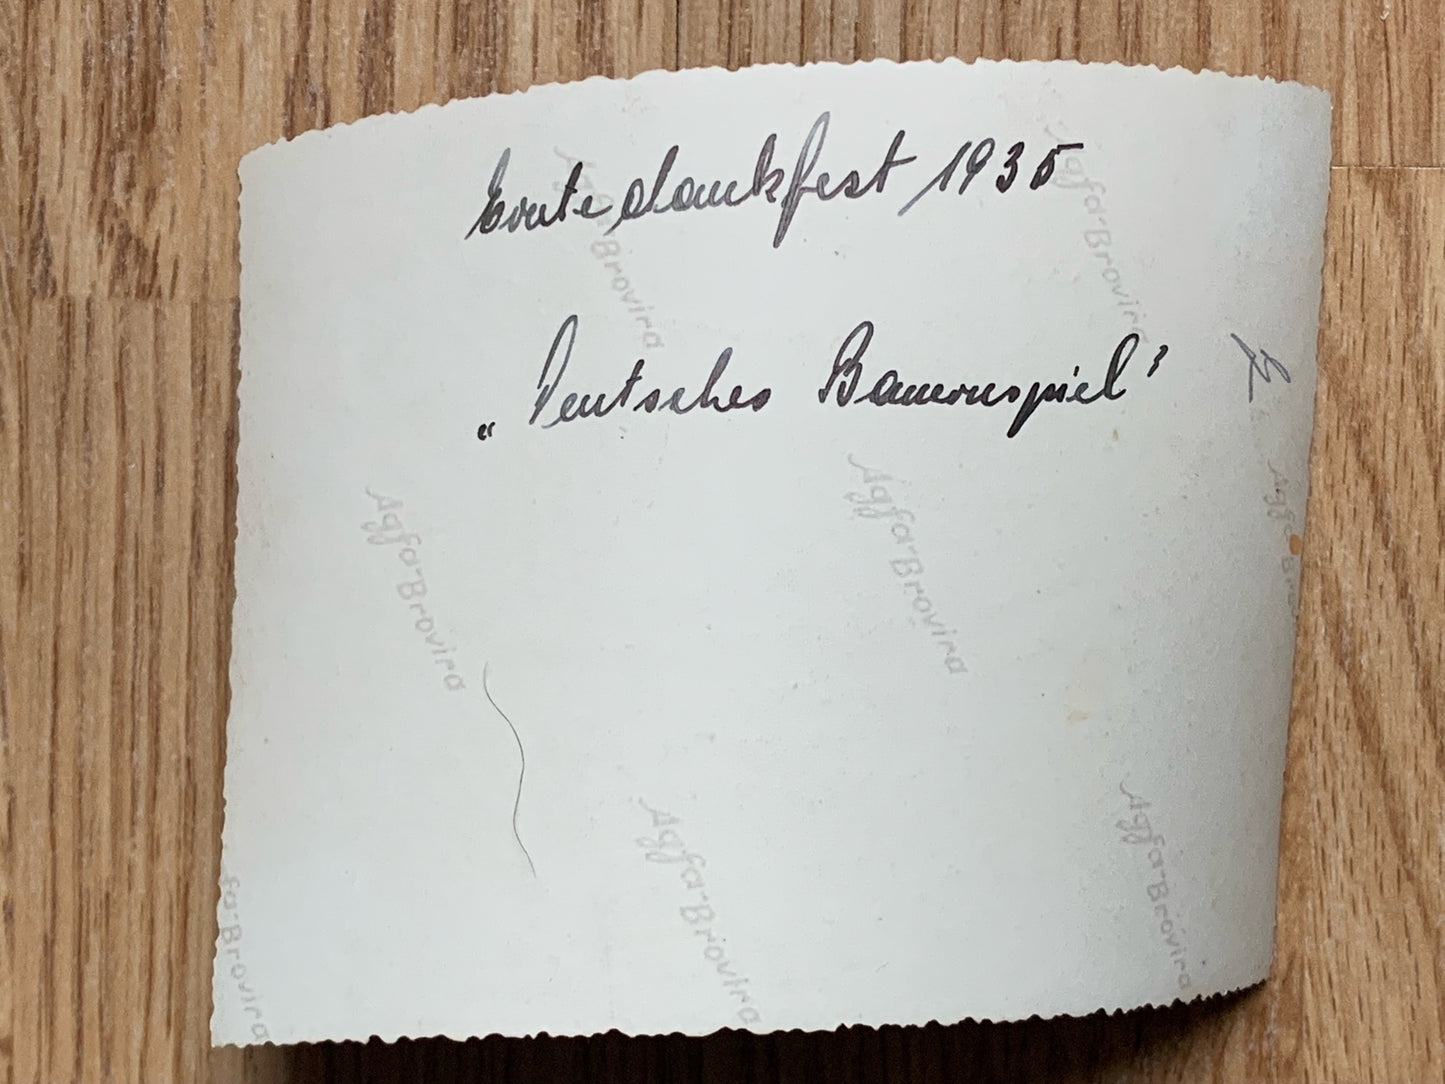 Erntedankfest 1935
„Deutsches Bauernspiel"
Agfa-Brovira
Agfa-Brovira
Agfa-Brovira
Agfa-Brovira
Agfa-Brovira
Agfa-Brovira
Agfa-Brovira
fa-Brovira